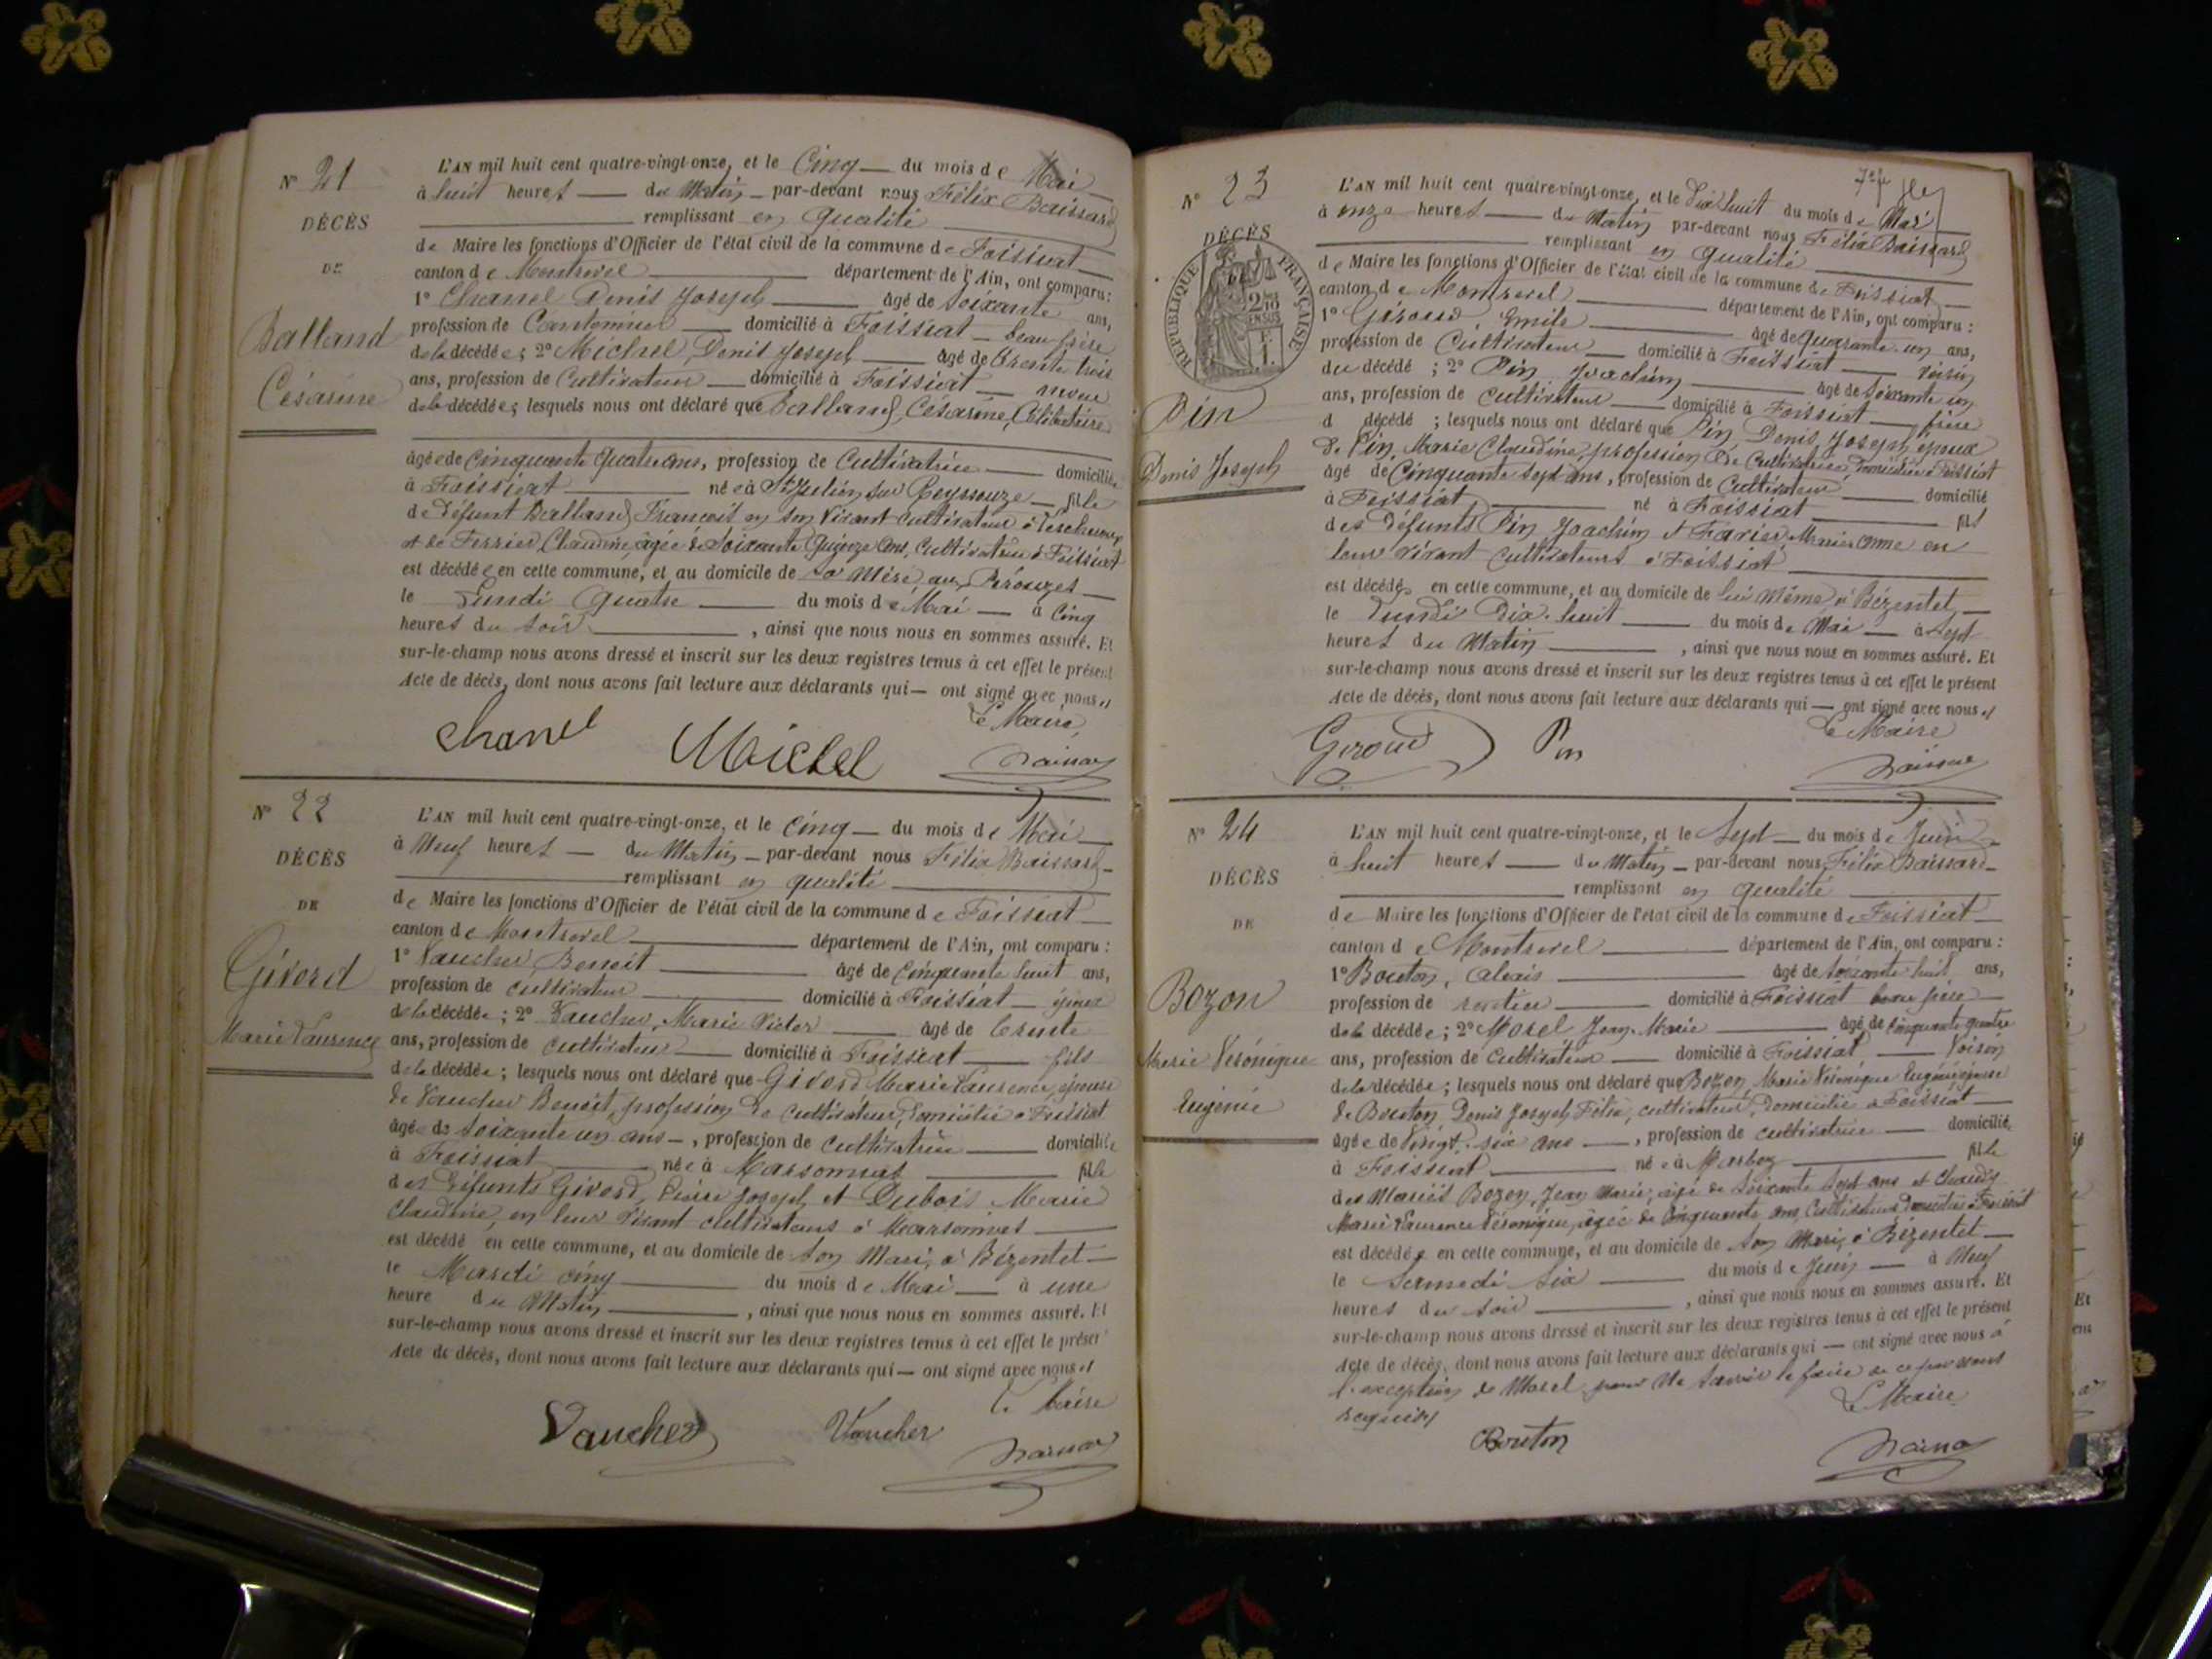 N° 21
DÉCÈS
DE
Balland
Césarine
L'AN mil huit cent quatre-vingt-onze, et le Cinq du mois de Mai
à huit heures du Matin par-devant nous Félix Baissard
remplissant en qualité
de Maire les fonctions d'Officier de l'état civil de la commune de Foissiat
canton de Montrevel département de l'Ain, ont comparu:
1° Chanel Denis Joseph âgé de soixante ans,
profession de Cantonnier domicilié à Foissiat beau frère
de la décédée; 2° Michel, Denis Joseph âgé de trente trois
ans, profession de Cultivateur domicilié à Foissiat neveu
de la décédée; lesquels nous ont déclaré que Balland, Césarine, Célibataire
âgée de Cinquante quatre ans, profession de Cultivatrice domiciliée
à Foissiat née à St Julien sur Reyssouze fille
de défunt Balland François en son vivant cultivateur à Lescheroux
et de Ferrier, Claudine, âgée de Soixante Quinze ans, Cultivatrice à Foissiat
est décédée en cette commune, et au domicile de sa Mère, aux Pérouzes
le Lundi Quatre du mois de Mai à Cinq
heures du soir, ainsi que nous nous en sommes assuré. Et
sur-le-champ nous avons dressé et inscrit sur les deux registres tenus à cet effet le présent
Acte de décès, dont nous avons fait lecture aux déclarants qui — ont signé avec nous
Le Maire
Chanel Michel Baissard
N° 22
DÉCÈS
DE
Givord
Marie Laurence
L'AN mil huit cent quatre-vingt-onze, et le Cinq du mois de Mai
à Neuf heures du Matin par-devant nous Félix Baissard
remplissant en qualité
de Maire les fonctions d'Officier de l'état civil de la commune de Foissiat
canton de Montrevel département de l'Ain, ont comparu :
1° Vaucher Benoit âgé de Cinquante huit ans,
profession de cultivateur domicilié à Foissiat époux
de la décédée ; 2° Vaucher, Marie Victor âgé de trente
ans, profession de cultivateur domicilié à Foissiat fils
de la décédée ; lesquels nous ont déclaré que Givord Marie Laurence, épouse
de Vaucher Benoit, profession de cultivateur, domicilié à Foissiat
âgée de soixante un ans, profession de cultivatrice domiciliée
à Foissiat née à Marsonnas fille
des défunts Givord, Pierre Joseph et Dubois Marie
Claudine, en leur vivant cultivateurs à Marsonnas
est décédé en cette commune, et au domicile de son Mari, à Bézentet
le Mardi cinq du mois de Mai à une
heure du Matin, ainsi que nous nous en sommes assuré. Et
sur-le-champ nous avons dressé et inscrit sur les deux registres tenus à cet effet le présent
Acte de décès, dont nous avons fait lecture aux déclarants qui — ont signé avec nous
Le Maire
Vaucher Vaucher Baissard
N° 23
DÉCÈS
RÉPUBLIQUE FRANÇAISE
Pin
Denis Joseph
L'AN mil huit cent quatre-vingt-onze, et le Dix huit du mois de Mai
à onze heures du Matin par-devant nous Félix Baissard
remplissant en qualité
de Maire les fonctions d'Officier de l'état civil de la commune de Foissiat
canton de Montrevel département de l'Ain, ont comparu :
1° Giroud Emile âgé de quarante un ans,
profession de Cultivateur domicilié à Foissiat voisin
du décédé ; 2° Pin Joachim âgé de soixante un
ans, profession de cultivateur domicilié à Foissiat frère
d décédé ; lesquels nous ont déclaré que Pin, Denis, Joseph, époux
de Pin, Marie Claudine, profession de Cultivatrice, domiciliée à Foissiat
âgé de Cinquante sept ans, profession de Cultivateur domicilié
à Foissiat né à Foissiat fils
des défunts Pin Joachim et Marie Anne en
leur vivant cultivateurs à Foissiat
est décédé en cette commune, et au domicile de lui même, à Bézentet
le Lundi Dix-huit du mois de Mai à sept
heures du Matin, ainsi que nous nous en sommes assuré. Et
sur-le-champ nous avons dressé et inscrit sur les deux registres tenus à cet effet le présent
Acte de décès, dont nous avons fait lecture aux déclarants qui — ont signé avec nous
Le Maire
Giroud Pin Baissard
N° 24
DÉCÈS
DE
Bozon
Marie Véronique
Eugénie
L'AN mil huit cent quatre-vingt-onze, et le Sept du mois de Juin
à huit heures du Matin par-devant nous Félix Baissard
remplissant en qualité
de Maire les fonctions d'Officier de l'état civil de la commune de Foissiat
canton de Montrevel département de l'Ain, ont comparu :
1° Bouton, Alexis âgé de soixante huit ans,
profession de rentier domicilié à Foissiat beau père
de la décédée ; 2° Morel Jean-Marie âgé de cinquante quatre
ans, profession de Cultivateur domicilié à Foissiat Voisin
de la décédée ; lesquels nous ont déclaré que Bozon, Marie Véronique Eugénie épouse
de Bouton Denis Joseph Félix, cultivateur, domicilié à Foissiat
âgée de Vingt-six ans, profession de cultivatrice domiciliée
à Foissiat née à Marboz fille
des Mariés Bozon, Jean Marie, âgé de soixante sept ans et
Marie Laurence Véronique, âgée de Cinquante ans, Cultivateurs domiciliés à Foissiat
est décédée en cette commune, et au domicile de son Mari, à Bézentet
le Samedi Six du mois de Juin à Neuf
heures du soir, ainsi que nous nous en sommes assuré. Et
sur-le-champ nous avons dressé et inscrit sur les deux registres tenus à cet effet le présent
Acte de décès, dont nous avons fait lecture aux déclarants qui — ont signé avec nous à
l'exception de Morel pour ne savoir le faire de ce par nous
requis
Le Maire
Bouton Baissard